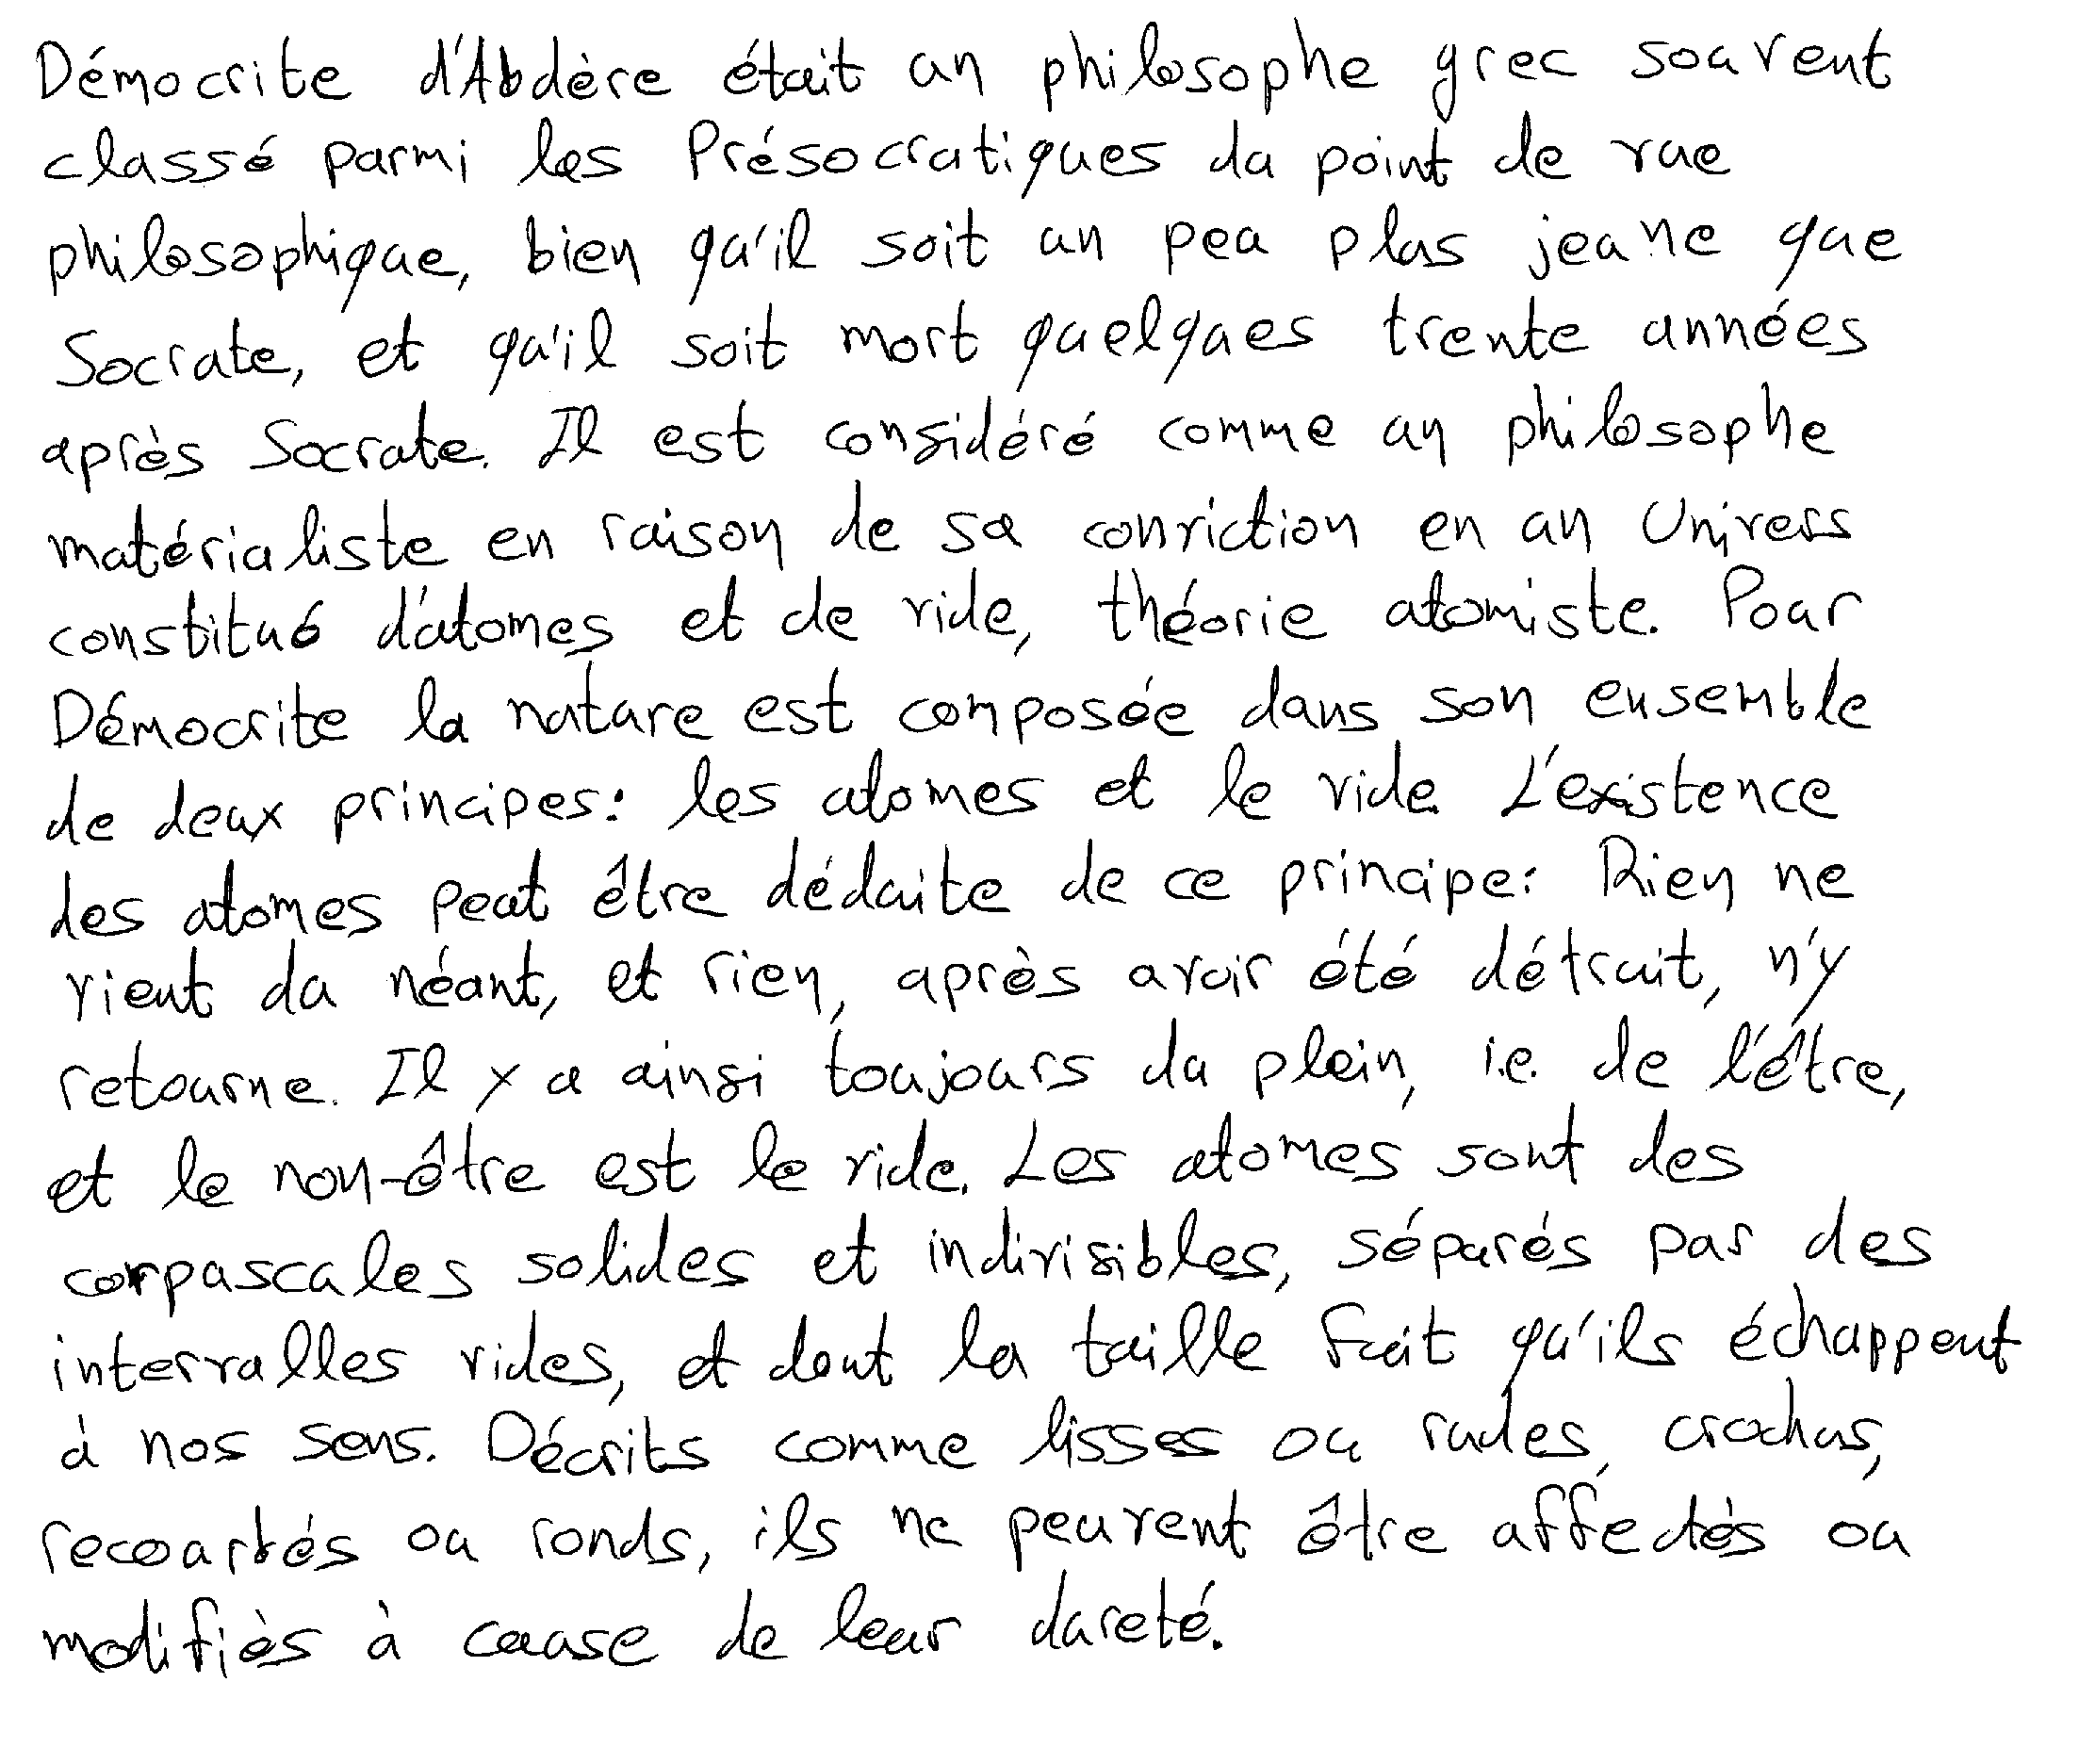 Démocrite d'Abdère était un philosophe grec souvent
classé parmi les Présocratiques du point de vue
philosophique, bien qu'il soit un peu plus jeune que
Socrate, et qu'il soit mort quelques trente années
après Socrate. Il est considéré comme un philosophe
matérialiste en raison de sa conviction en un Univers
constitué d'atomes et de vide, théorie atomiste. Pour
Démocrite la nature est composée dans son ensemble
de deux principes: les atomes et le vide. L'existence
des atomes peut être déduite de ce principe: Rien ne
vient du néant, et rien, après avoir été détruit, n'y
retourne. Il y a ainsi toujours du plein, i.e. de l'être,
et le non-être est le vide. Les atomes sont des
corpuscules solides et indivisibles, séparés par des
intervalles vides, et dont la taille fait qu'ils échappent
à nos sens. Décrits comme lisses ou rudes, crochus,
recourbés ou ronds, ils ne peuvent être affectés ou
modifiés à cause de leur dureté.